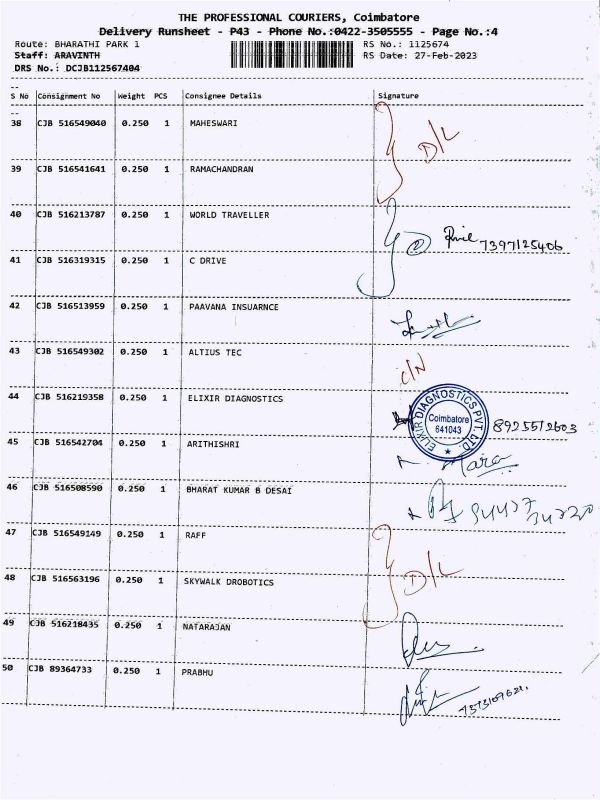 THE PROFESSIONAL COURIERS, Coimbatore
Delivery Runsheet - P43 - Phone No.:0422-3505555 - Page No.:4
Route: BHARATHI PARK 1 RS No.: 1125674
Staff: ARAVINTH RS Date: 27-Feb-2023
DRS No.: DCJB112567404
S No Consignment No Weight PCS Consignee Details Signature
38 CJB 516549040 0.250 1 MAHESWARI
D/L
39 CJB 516541641 0.250 1 RAMACHANDRAN
40 CJB 516213787 0.250 1 WORLD TRAVELLER
② 7397125406
41 CJB 516319315 0.250 1 C DRIVE
42 CJB 516513959 0.250 1 PAAVANA INSUARNCE
43 CJB 516549302 0.250 1 ALTIUS TEC
C/N
44 CJB 516219358 0.250 1 ELIXIR DIAGNOSTICS
ELIXIR DIAGNOSTICS PVT LTD.
Coimbatore
641043
8925512603
45 CJB 516542704 0.250 1 ARITHISHRI
46 CJB 516508590 0.250 1 BHARAT KUMAR B DESAI
47 CJB 516549149 0.250 1 RAFF
D/L
48 CJB 516563196 0.250 1 SKYWALK DROBOTICS
49 CJB 516218435 0.250 1 NATARAJAN
50 CJB 89364733 0.250 1 PRABHU